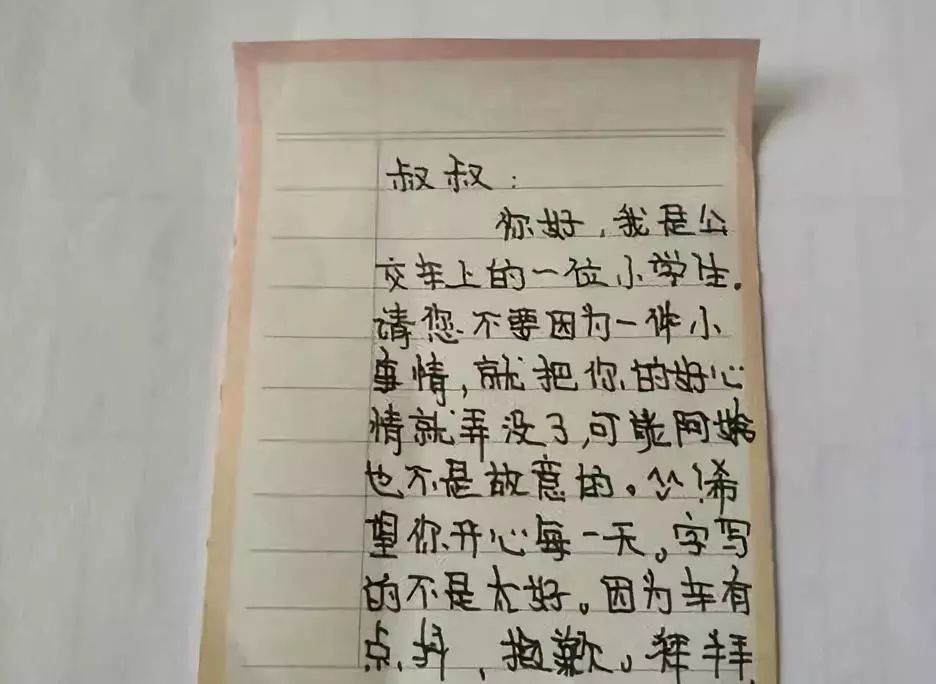 叔叔：
你好，我是公
交车上的一位小学生.
请您不要因为一件小
事情，就把你的好心
情就弄没了，可能阿姨
也不是故意的。^^！希
望你开心每一天。字写
的不是太好。因为车有
点抖，抱歉。拜拜